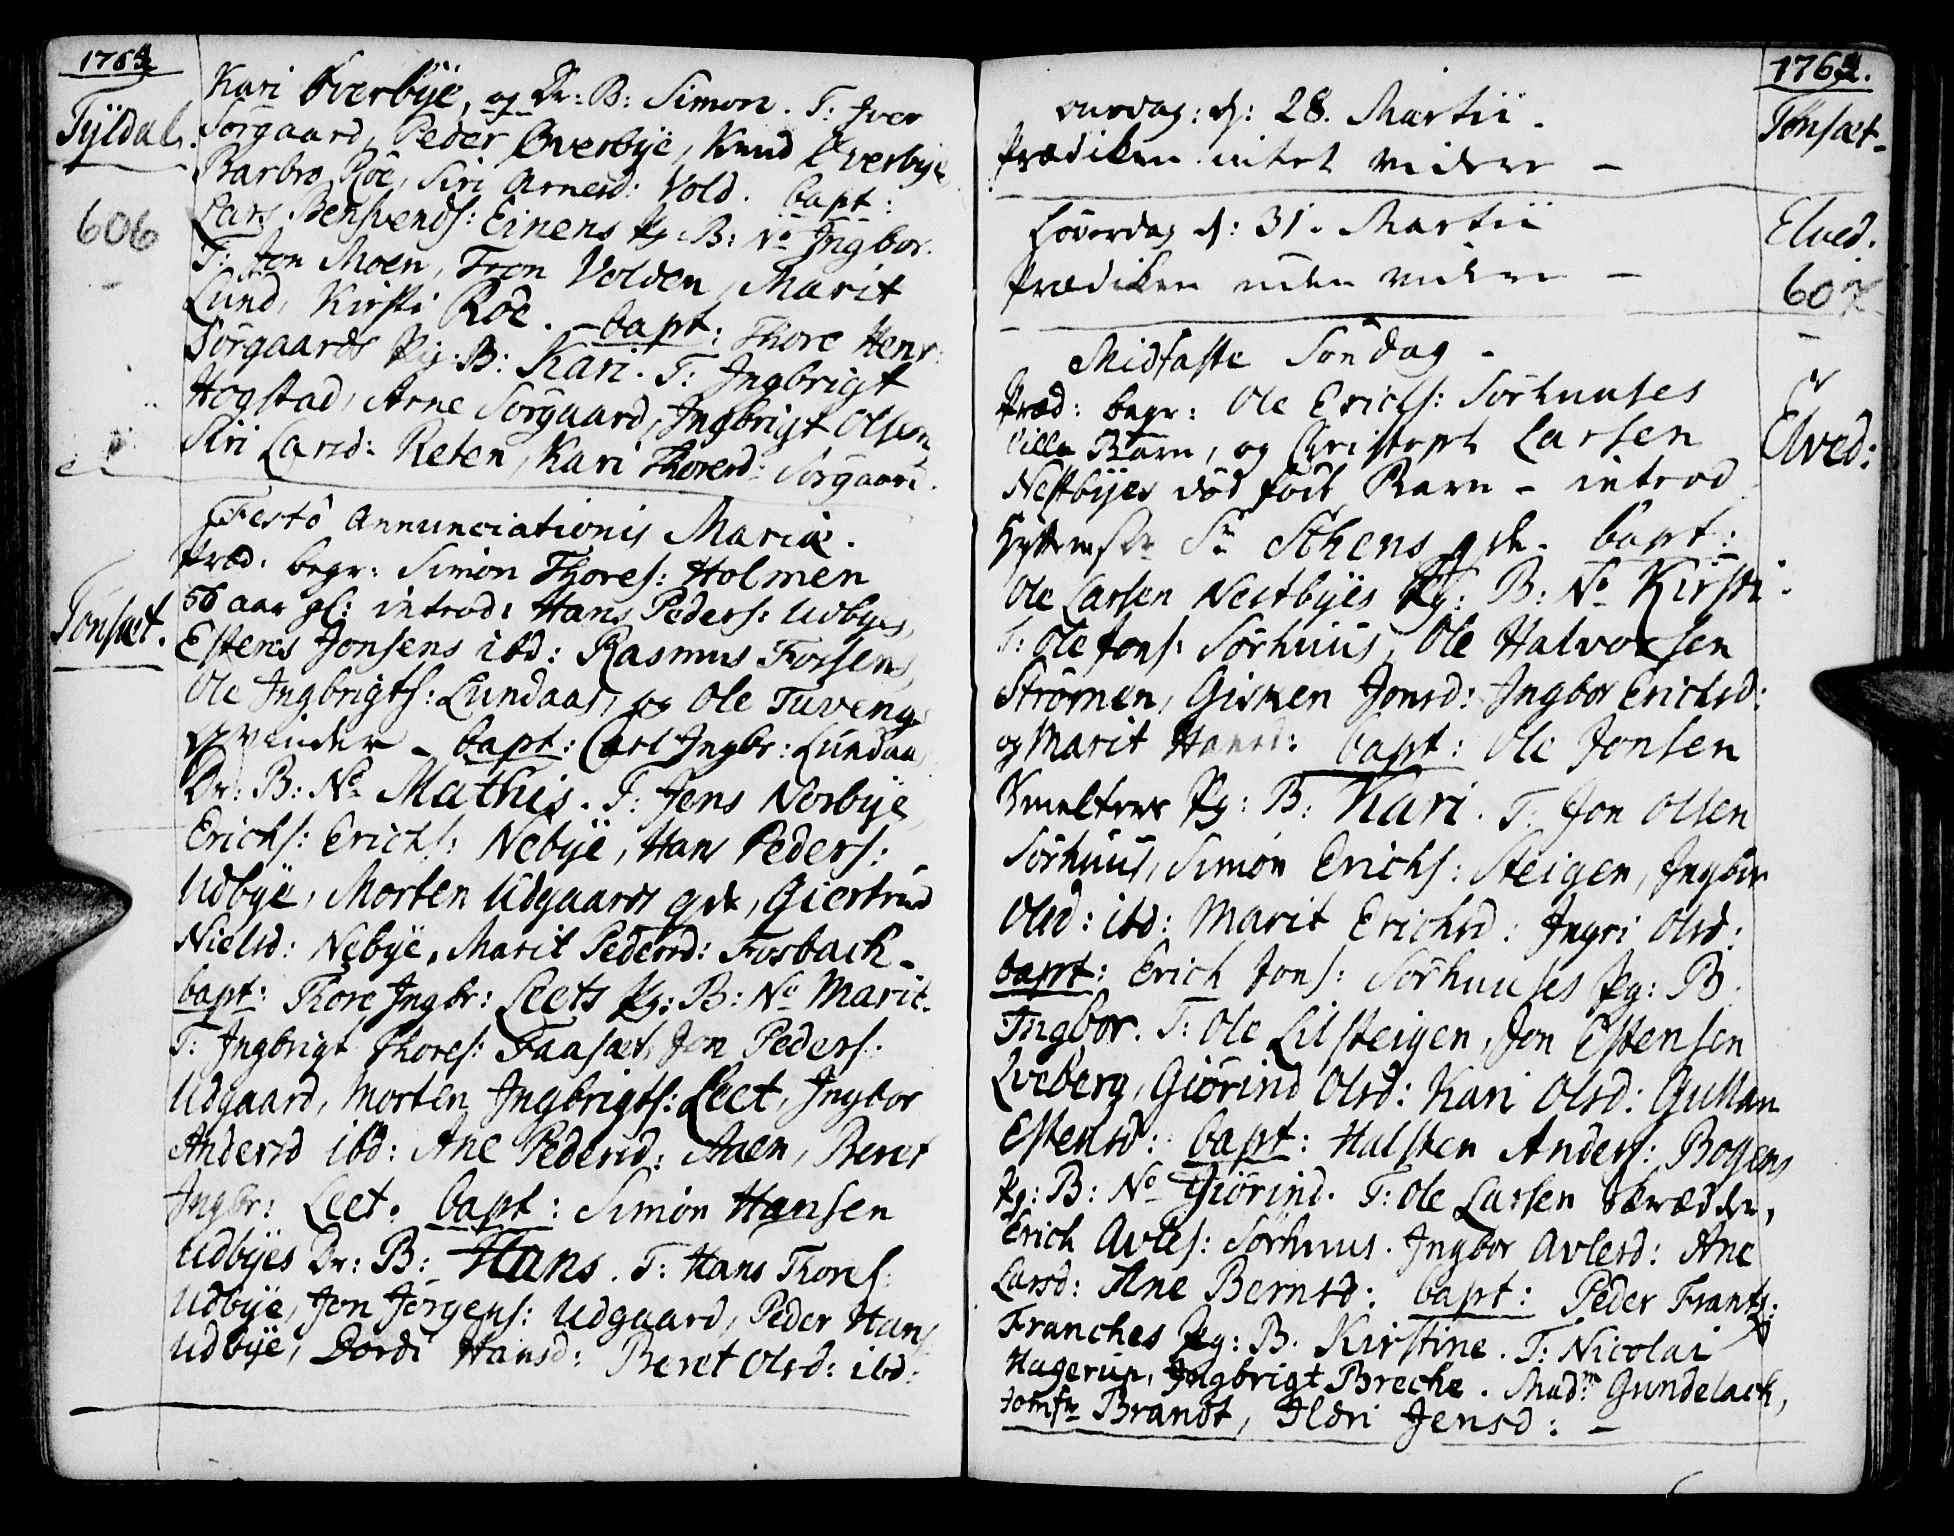 1764
Tÿldal.
606
Kari Øverbÿe, og Dr: B: Simon. T: Iver
Sørgaard, Peder Øverbÿe, Knud Øverbÿe
Barbro Röe, Siri Arnesd: Vold. bapt:
Lars Bensvends: Einens Pg: B: No Ingbor.
T: Jon Moen, Tron Volden, Marit
Lund, Kirsti Roe. bapt: Thore Henr:
Sørgaards Pig: B: Kari. T: Ingbrigt
Hogstad, Arne Sørgaard, Ingbrigt Olsen
Siri Larsd: Reten, Kari Thoresd: Sørgaard.
Festo Annunciationis Mariæ.
Tønsæt.
Præd: begr: Simon Thores: Holmen
aar gl: introd: Hans Peders: Udbyes,
Estens Jonsens ibd: Rasmus Fossens,
Ole Ingbrigts: Lundaas, og Ole Tuvengs
qvinder - bapt: Carl Ingbr: Lundaas
Dr: B: No Mathis. T: Jens Norbÿe,
Erichs: Erichs: Nebÿe, Hans Peders:
Udbÿe, Morten Udgaards qde, Giertrud
Nielsd: Nebÿe, Marit Pedersd: Fosbach -
bapt: Thore Ingbr: Leets Pg: B: No Marit.
T: Ingbrigt Thores: Faasæt, Jon Peders:
Udgaard, Morten Ingbrigts: Leet, Ingbor
Andersd ibd: Ane Pedersd: Aaen, Beret
Ingbr: Leet. bapt: Simon Hansen
Udbÿes Dr: B: Hans. T: Hans Thores:
Udbÿe, Jon Jørgens: Udgaard, Peder Hans
Udbÿe, Dordi Hansd: Beret Olsd: ibd:
1764.
Tønsæt.
Onsdag: d: 28. Martii.
Prædiken intet videre -
Elved.
607
Löverdag d: 31. Martii
Prædiken uden videre -
Midfaste Søndag -
Elved:
Præd: begr: Ole Erichs: Sørhuuses
lille Barn, og Christoph Larsen
Nestbÿes død født Barn - introd
Sr Sthens qde. bapt:
Ole Larsen Nestbÿes Pg: B: No Kirsti.
T: Ole Jons: Sørhuus, Ole Halvorsen
Strömen, Gisken Jonsd: Ingbor Erichsd:
og Marit Hansd: bapt: Ole Jonsen
Smelters Pg: B: Kari. T. Jon Olsen
Sørhuus, Simon Erichs: Steigen, Ingbor
Olsd: ibd: Marit Erichsd: Ingri Olsd:
bapt: Erich Jons: Sørhuuses Pg: B.
Ingbor. T: Ole Lilsteigen, Jon Estensen
Lveberg, Giörind Olsd: Kari Olsd: Gullan
Estensd: bapt: Halsten Anders: Bogens
Pg: B: No Giörind. T: Ole Larsen Skrædder,
Erich Avles: Sørhuus. Ingbor Avlesd: Ane
Larsd: Ane Berntd: bapt: Peder Frantz:
Franches Pg: B. Kirstine. T: Nicolai
Hagerup, Ingbrigt Breche. Madm Gundelach,
Jomfr Brandt, Ildri Jensd: -